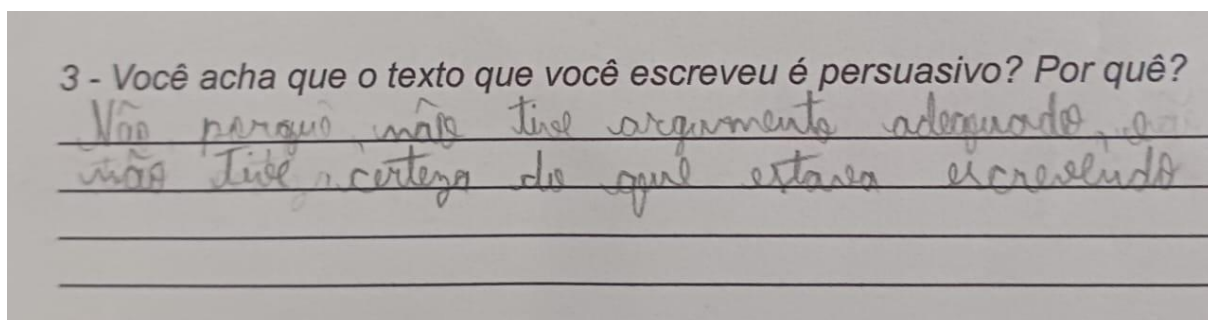 3 - Você acha que o texto que você escreveu é persuasivo? Por quê?
Não porque não tive argumento adequado, e
não tive certeza do que estava escrevendo